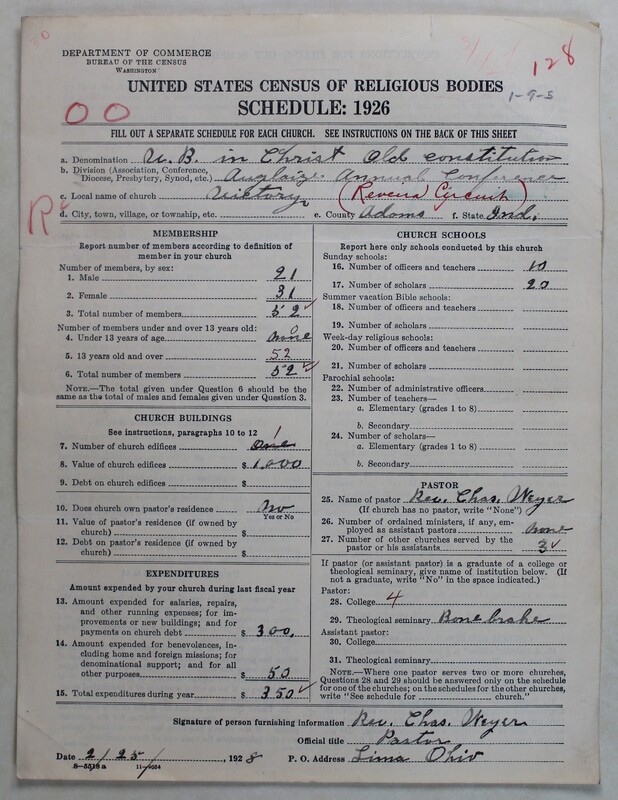 30
128
1-9-5
DEPARTMENT OF COMMERCE
BUREAU OF THE CENSUS
WASHINGTON
UNITED STATES CENSUS OF RELIGIOUS BODIES
SCHEDULE: 1926
OO
FILL OUT A SEPARATE SCHEDULE FOR EACH CHURCH. SEE INSTRUCTIONS ON THE BACK OF THIS SHEET
a. Denomination U. B. in Christ Old constitution
b. Division (Association, Conference, Diocese, Presbytery, Synod, etc.) Auglaize Annual Conference
c. Local name of church Victory (Revera Circuit)
R
d. City, town, village, or township, etc. e. County Adams f. State Ind.
MEMBERSHIP
Report number of members according to definition of
member in your church
Number of members, by sex:
1. Male 21
2. Female 31
3. Total number of members 52
Number of members under and over 13 years old:
0
4. Under 13 years of age none
5. 13 years old and over 52
6. Total number of members 52
NOTE.—The total given under Question 6 should be the
same as the total of males and females given under Question 3.
CHURCH BUILDINGS
See instructions, paragraphs 10 to 12
1
7. Number of church edifices one
8. Value of church edifices $ 1,000
9. Debt on church edifices $
10. Does church own pastor's residence No
Yes or No
11. Value of pastor's residence (if owned by
church) $
12. Debt on pastor's residence (if owned by
church) $
EXPENDITURES
Amount expended by your church during last fiscal year
13. Amount expended for salaries, repairs,
and other running expenses; for im-
provements or new buildings; and for
payments on church debt $ 300.
14. Amount expended for benevolences, in-
cluding home and foreign missions; for
denominational support; and for all
other purposes $ 50
15. Total expenditures during year $ 350
CHURCH SCHOOLS
Report here only schools conducted by this church
Sunday schools:
16. Number of officers and teachers 10
17. Number of scholars 20
Summer vacation Bible schools:
18. Number of officers and teachers
19. Number of scholars
Week-day religious schools:
20. Number of officers and teachers
21. Number of scholars
Parochial schools:
22. Number of administrative officers
23. Number of teachers—
a. Elementary (grades 1 to 8)
b. Secondary
24. Number of scholars—
a. Elementary (grades 1 to 8)
b. Secondary
PASTOR
25. Name of pastor Rev. Chas. Weyer
(If church has no pastor, write "None")
26. Number of ordained ministers, if any, em-
ployed as assistant pastors none
27. Number of other churches served by the
pastor or his assistants 3
If pastor (or assistant pastor) is a graduate of a college or
theological seminary, give name of institution below. (If
not a graduate, write "No" in the space indicated.)
Pastor:
28. College 4
29. Theological seminary Bonebrake
Assistant pastor:
30. College
31. Theological seminary
NOTE.—Where one pastor serves two or more churches,
Questions 28 and 29 should be answered only on the schedule
for one of the churches; on the schedules for the other churches,
write "See schedule for church."
Signature of person furnishing information Rev. Chas. Weyer
Official title Pastor
Date 2/25/ 1928 P. O. Address Lima Ohio
8-5518a 11-9034